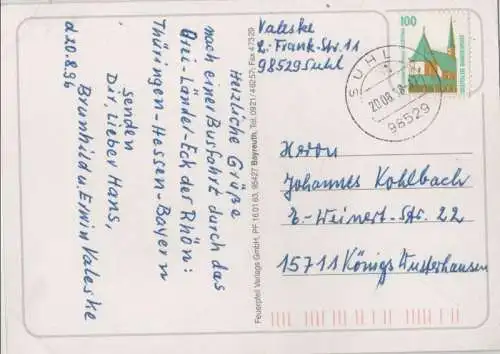 Herzliche Grüße
nach einer Busfahrt durch das
Drei-Länder-Eck der Rhön:
Thüringen-Hessen-Bayern
senden
Dir, lieber Hans,
Brunhild u. Erwin Valeske
d 20.8.96
Feuerpfeil Verlags GmbH, PF 16 01 63, 95427 Bayreuth, Tel. 0921/46257, Fax 47329
Valeske
E.-Frank-Str. 11
98529 Suhl
100
SUHL
20.08.
98529
Herrn
Johannes Kohlbach
E-Weinert-Str. 22
15711 Königs Wusterhausen